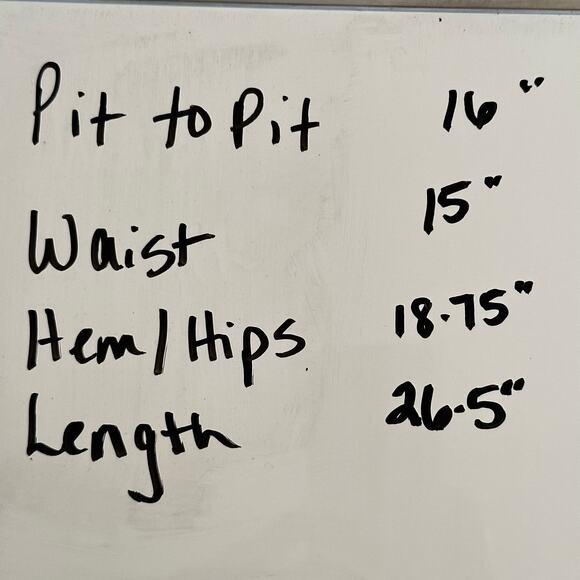 Pit to Pit 16"
Waist 15"
Hem/Hips 18.75"
Length 26.5"